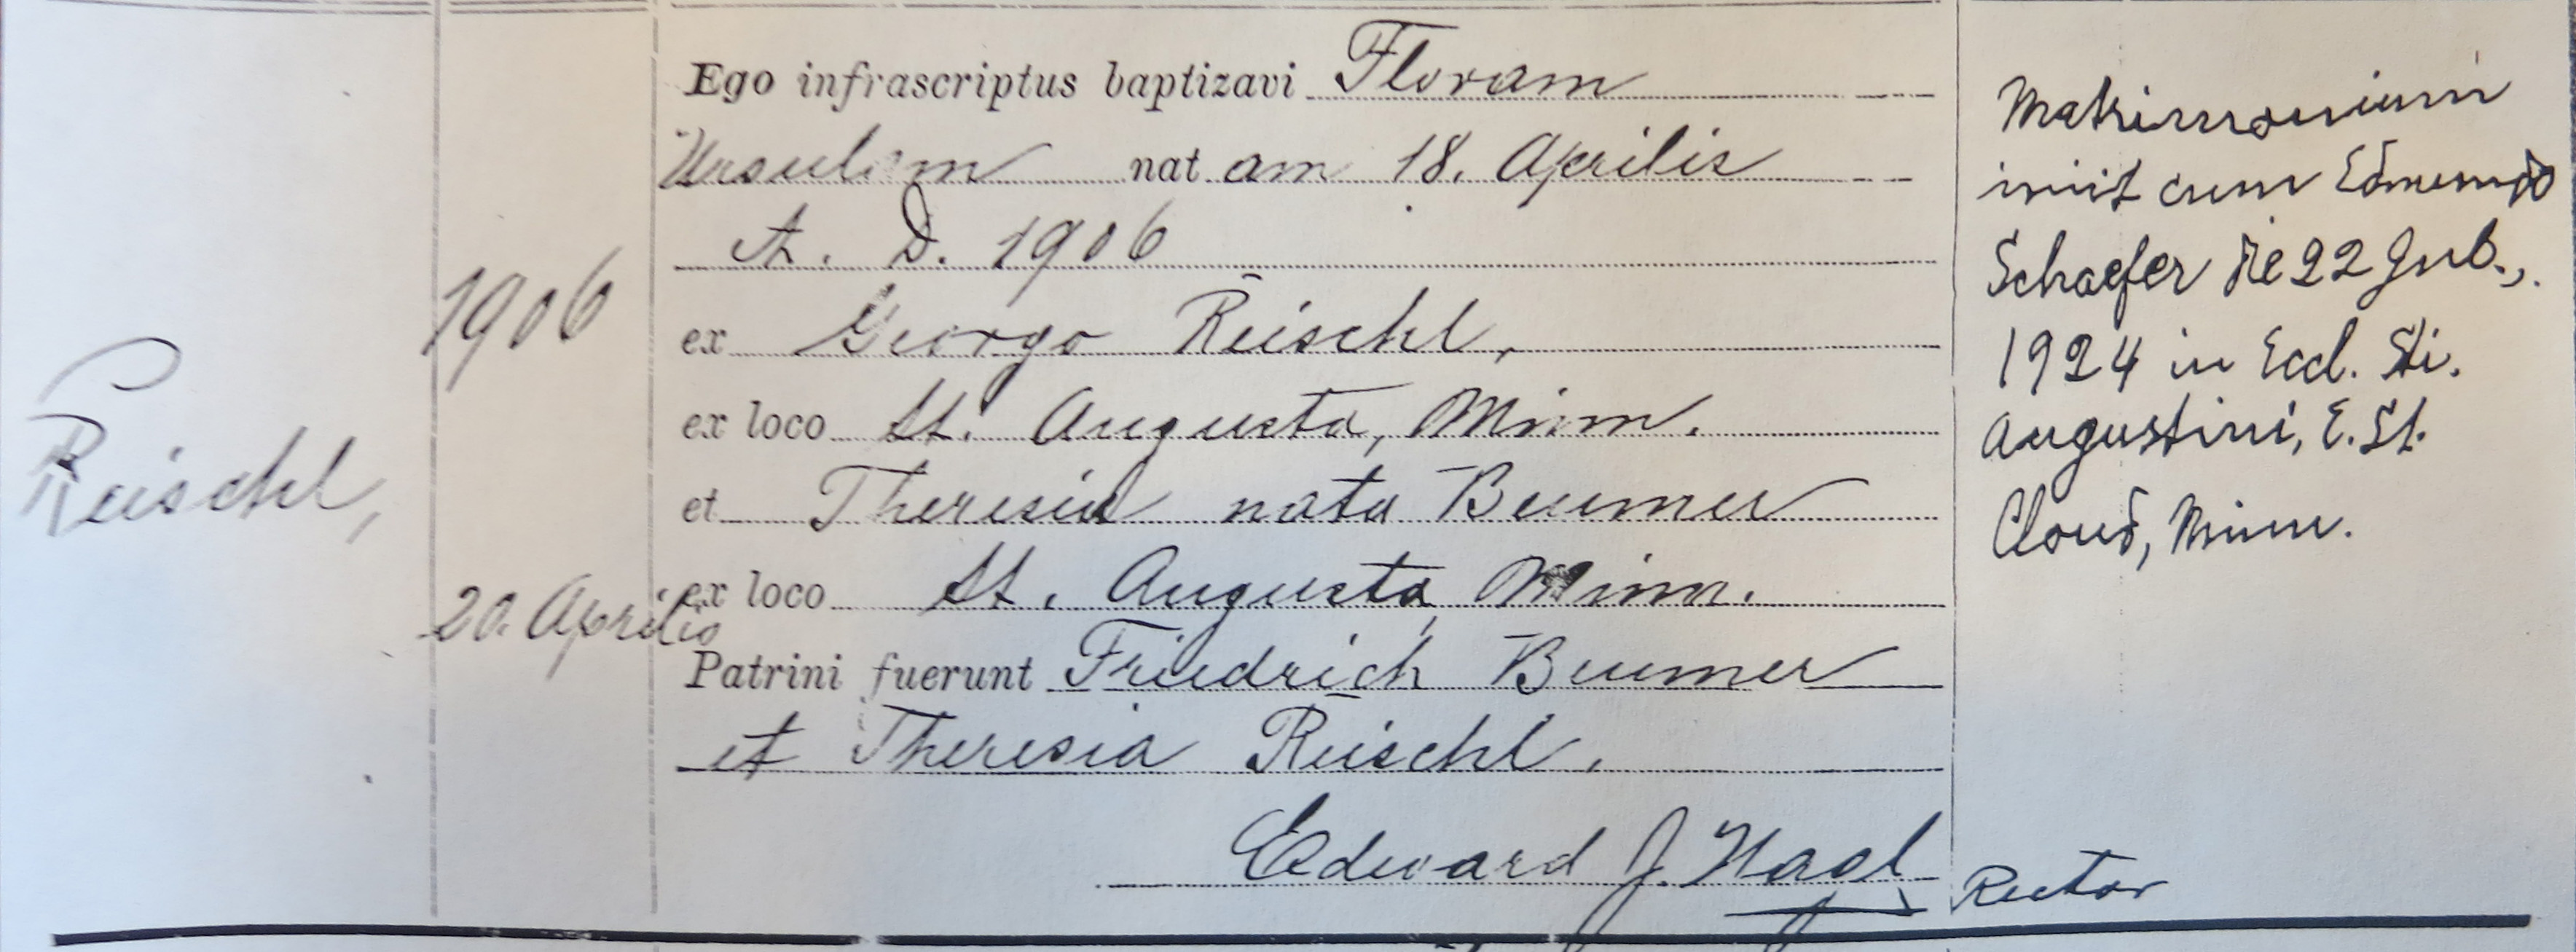 Reischl,
1906
20. Aprilis
Ego infrascriptus baptizavi Floram
Ursulam nat am 18. Aprilis
A. D. 1906
ex Georgo Reischl,
ex loco St. Augusta, Minn.
et Theresia nata Beumer
ex loco St. Augusta, Minn.
Patrini fuerunt Friedrich Beumer
et Theresia Reischl.
Edward J. Nagl
Rector
Matrimonium
iniit cum Edmundo
Schaefer die 22
1924 in Eccl. Sti.
Augustini, E. St.
Cloud, Minn.